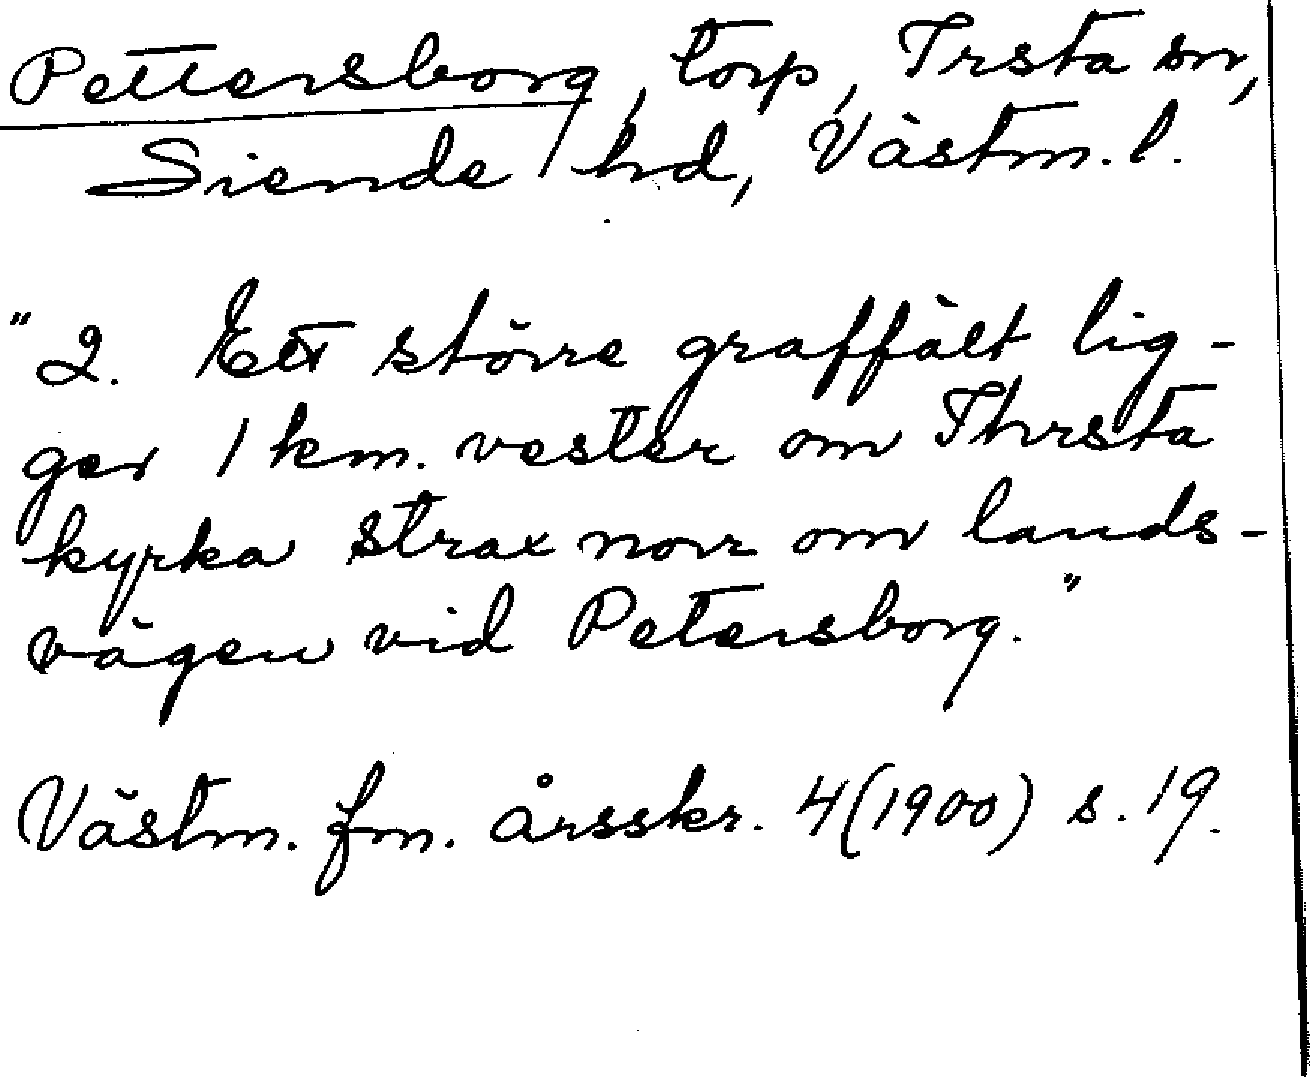 Pettersborg, torp, Irsta sn,
Siende hd, Västm. l.
"2. Ett större graffält lig-
ger 1 km. vester om Ihrsta
kyrka strax norr om lands-
vägen vid Petersborg."
Västm. fm. årsskr. 4(1900) s. 19.